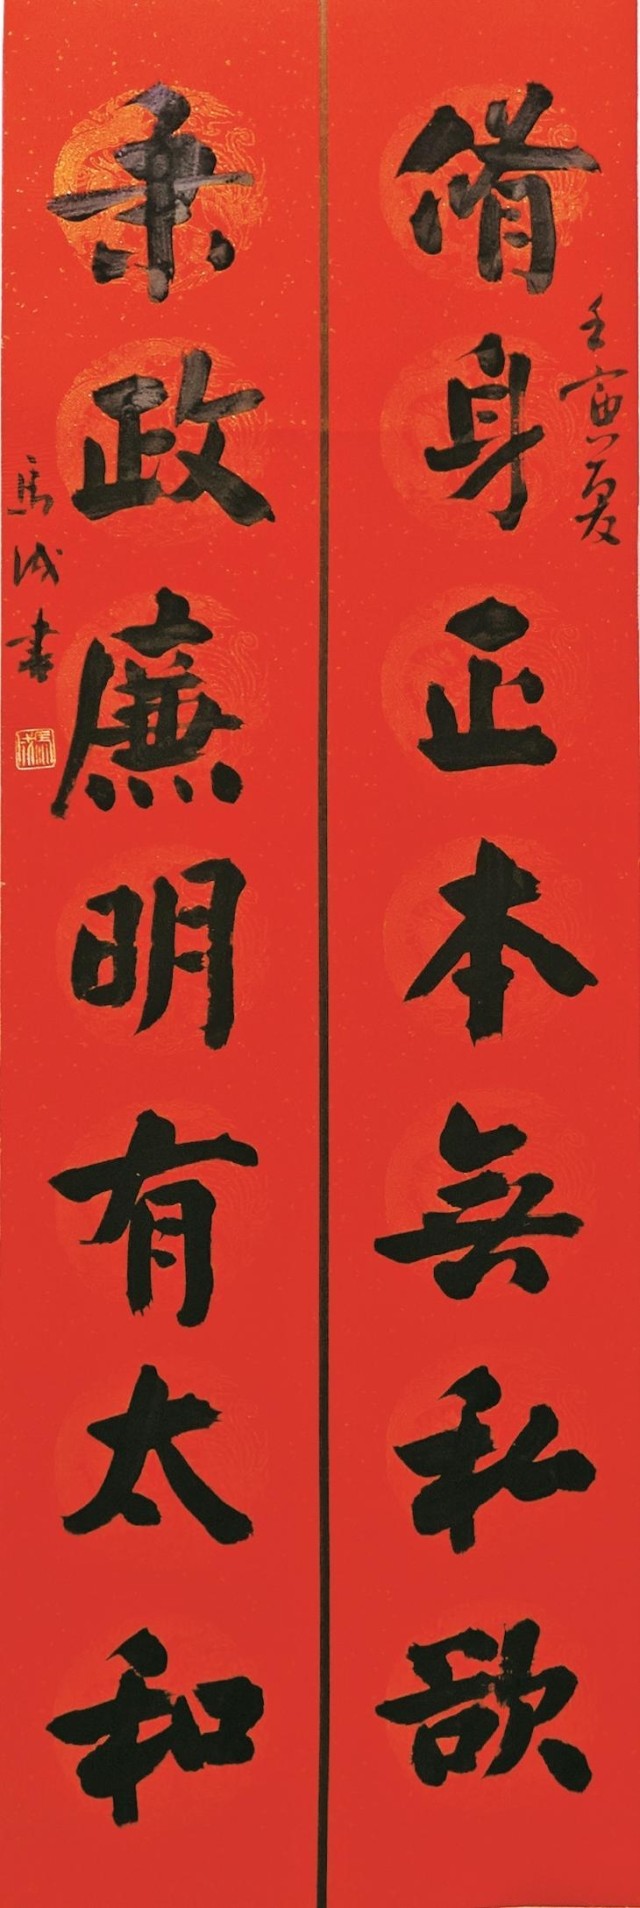 壬寅夏
脩身正本無私欲
秉政廉明有太和
馬成書